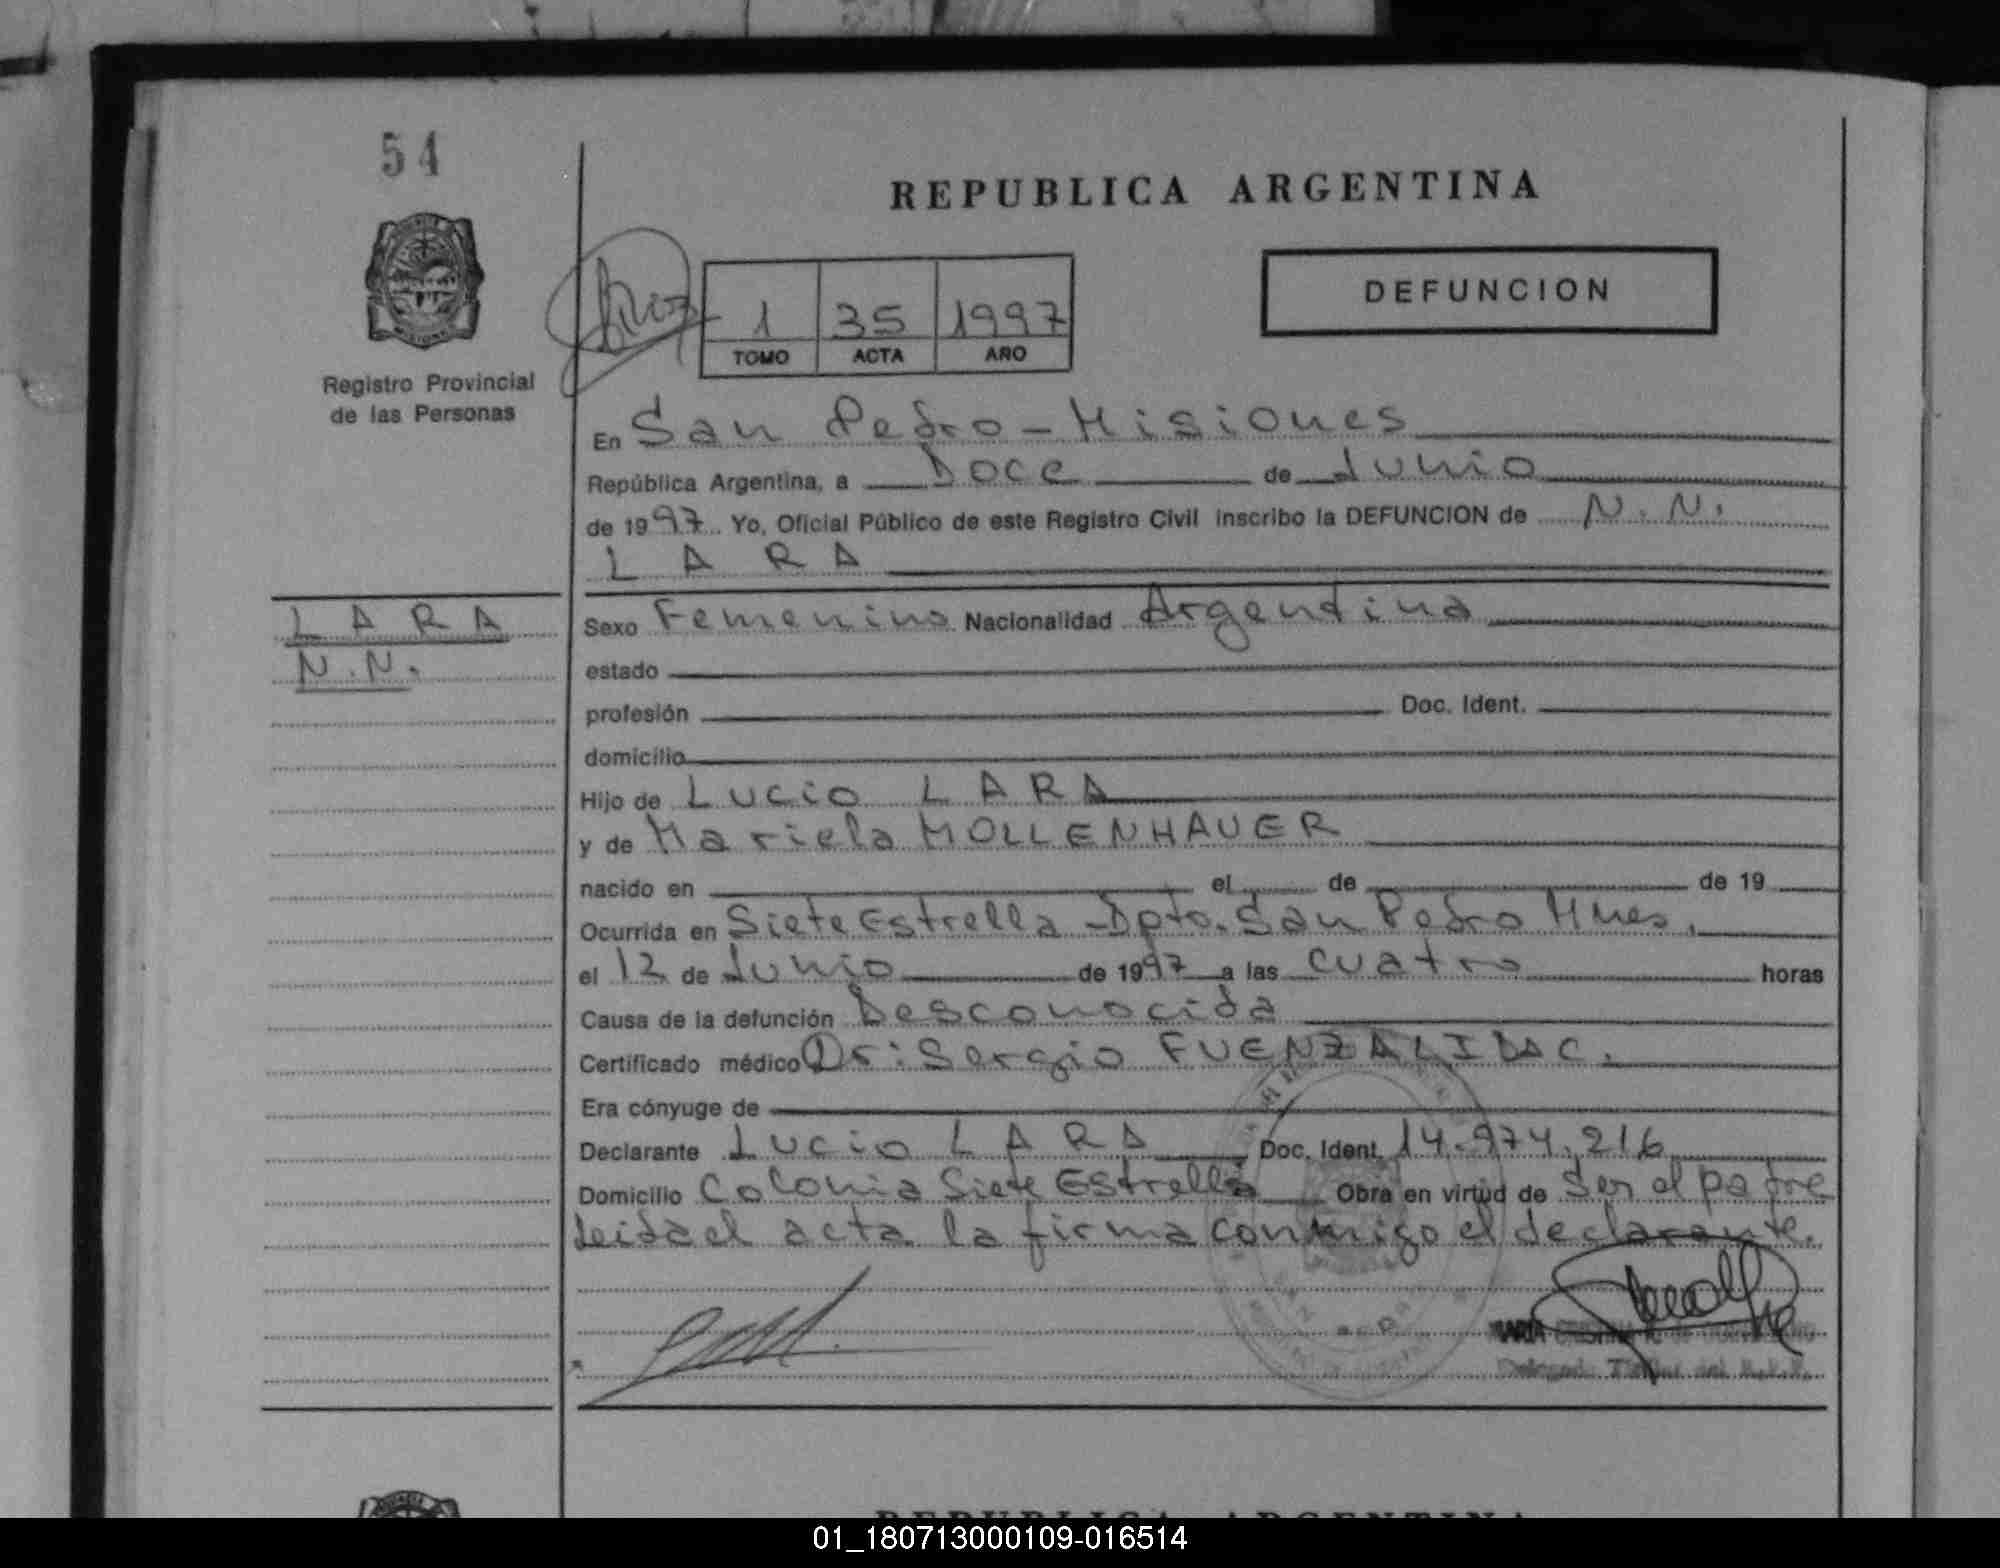 54
REPUBLICA ARGENTINA
DEFUNCION
1 35 1997
TOMO ACTA AÑO
Registro Provincial
de las Personas
En San Pedro - Misiones
República Argentina, a Doce de Junio
de 1997. Yo, Oficial Público de este Registro Civil inscribo la DEFUNCION de N. N.
LARA
LARA
N.N.
Sexo Femenino Nacionalidad Argentina
estado
profesión Doc. Ident.
domicilio
Hijo de Lucio LARA
y de Mariela MOLLENHAUER
nacido en el de de 19
Ocurrida en Siete Estrella - Dpto. San Pedro Mnes.
el 12 de Junio de 1997 a las cuatro horas
Causa de la defunción Desconocida
Certificado médico Dr: Sergio FUENZALIDA C.
Era cónyuge de
Declarante Lucio LARA Doc. Ident. 14.974.216
Domicilio Colonia Siete Estrella Obra en virtud de Ser el padre
Leida el acta la firma conmigo el declarante.
MARIA
Delegada Titular del R.P.P.
REPUBLICA ARGENTINA
01_180713000109-016514